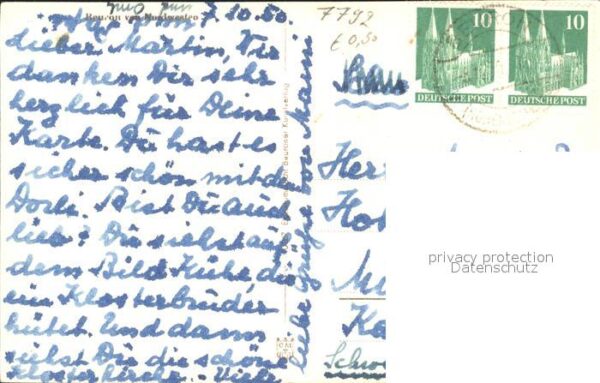 Beuron von Nordwesten
7.10.50.
Lieber Martin, Wir
danken Dir sehr
herzlich für Deine
Karte. Du hast es
sicher schön mit der
Dorli. Bist Du auch
lieb? Du siehst auf
dem Bild Kühe, die
ein Klosterbruder
hütet. Und dann
siehst Du die schöne
Klosterkirche. - Viele
liebe Grüße von Mami
7792
€ 0,50
10
10
DEUTSCHE POST
DEUTSCHE POST
Her
Ho
M
Ka
Schw
privacy protection
Datenschutz